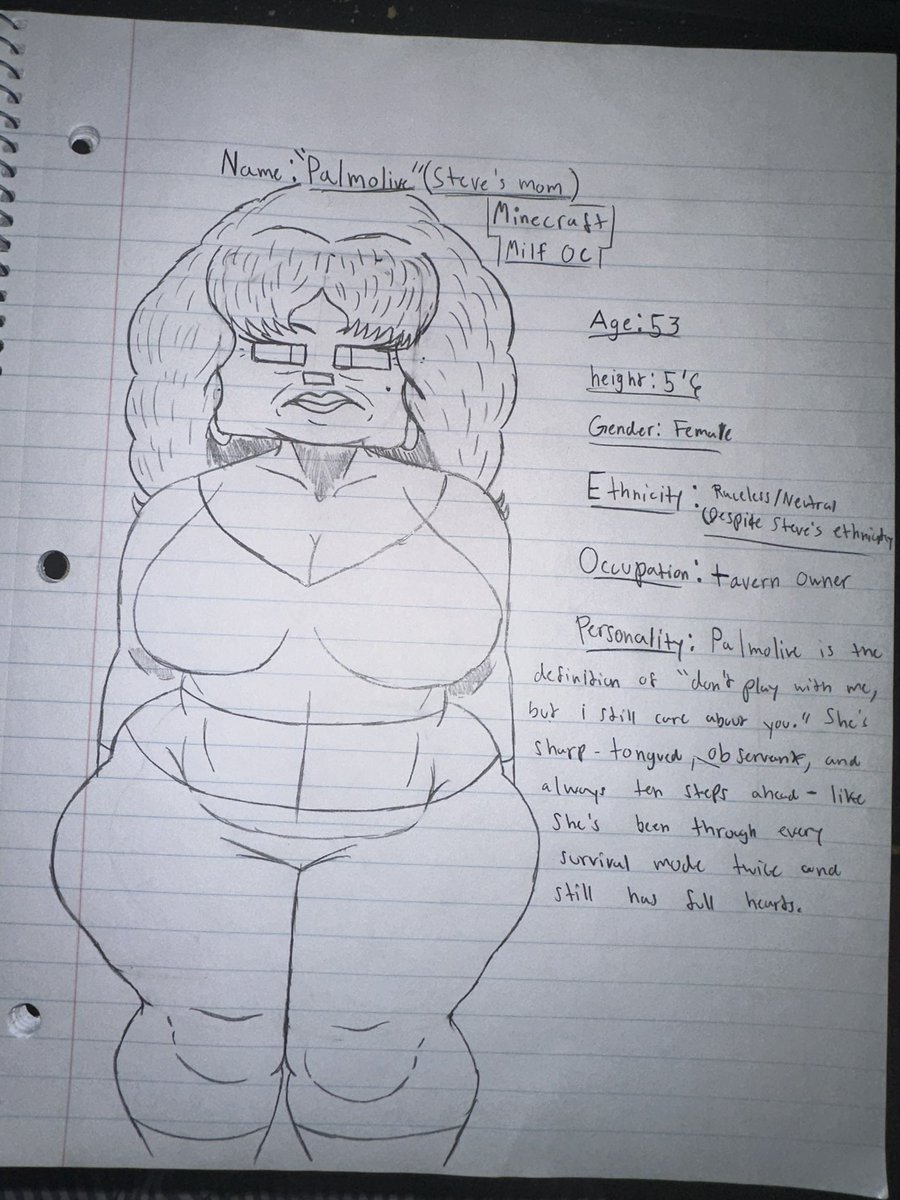 Name: "Palmolive" (Steve's mom)
Minecraft
Milf OC
Age: 53
height: 5'6
Gender: Female
Ethnicity: Raceless/Neutral
(Despite Steve's ethnicity
Occupation: tavern owner
Personality: Palmolive is the
definition of "don't play with me,
but i still care about you." She's
sharp-tongued, observant, and
always ten steps ahead - like
she's been through every
survival mode twice and
still has full hearts.